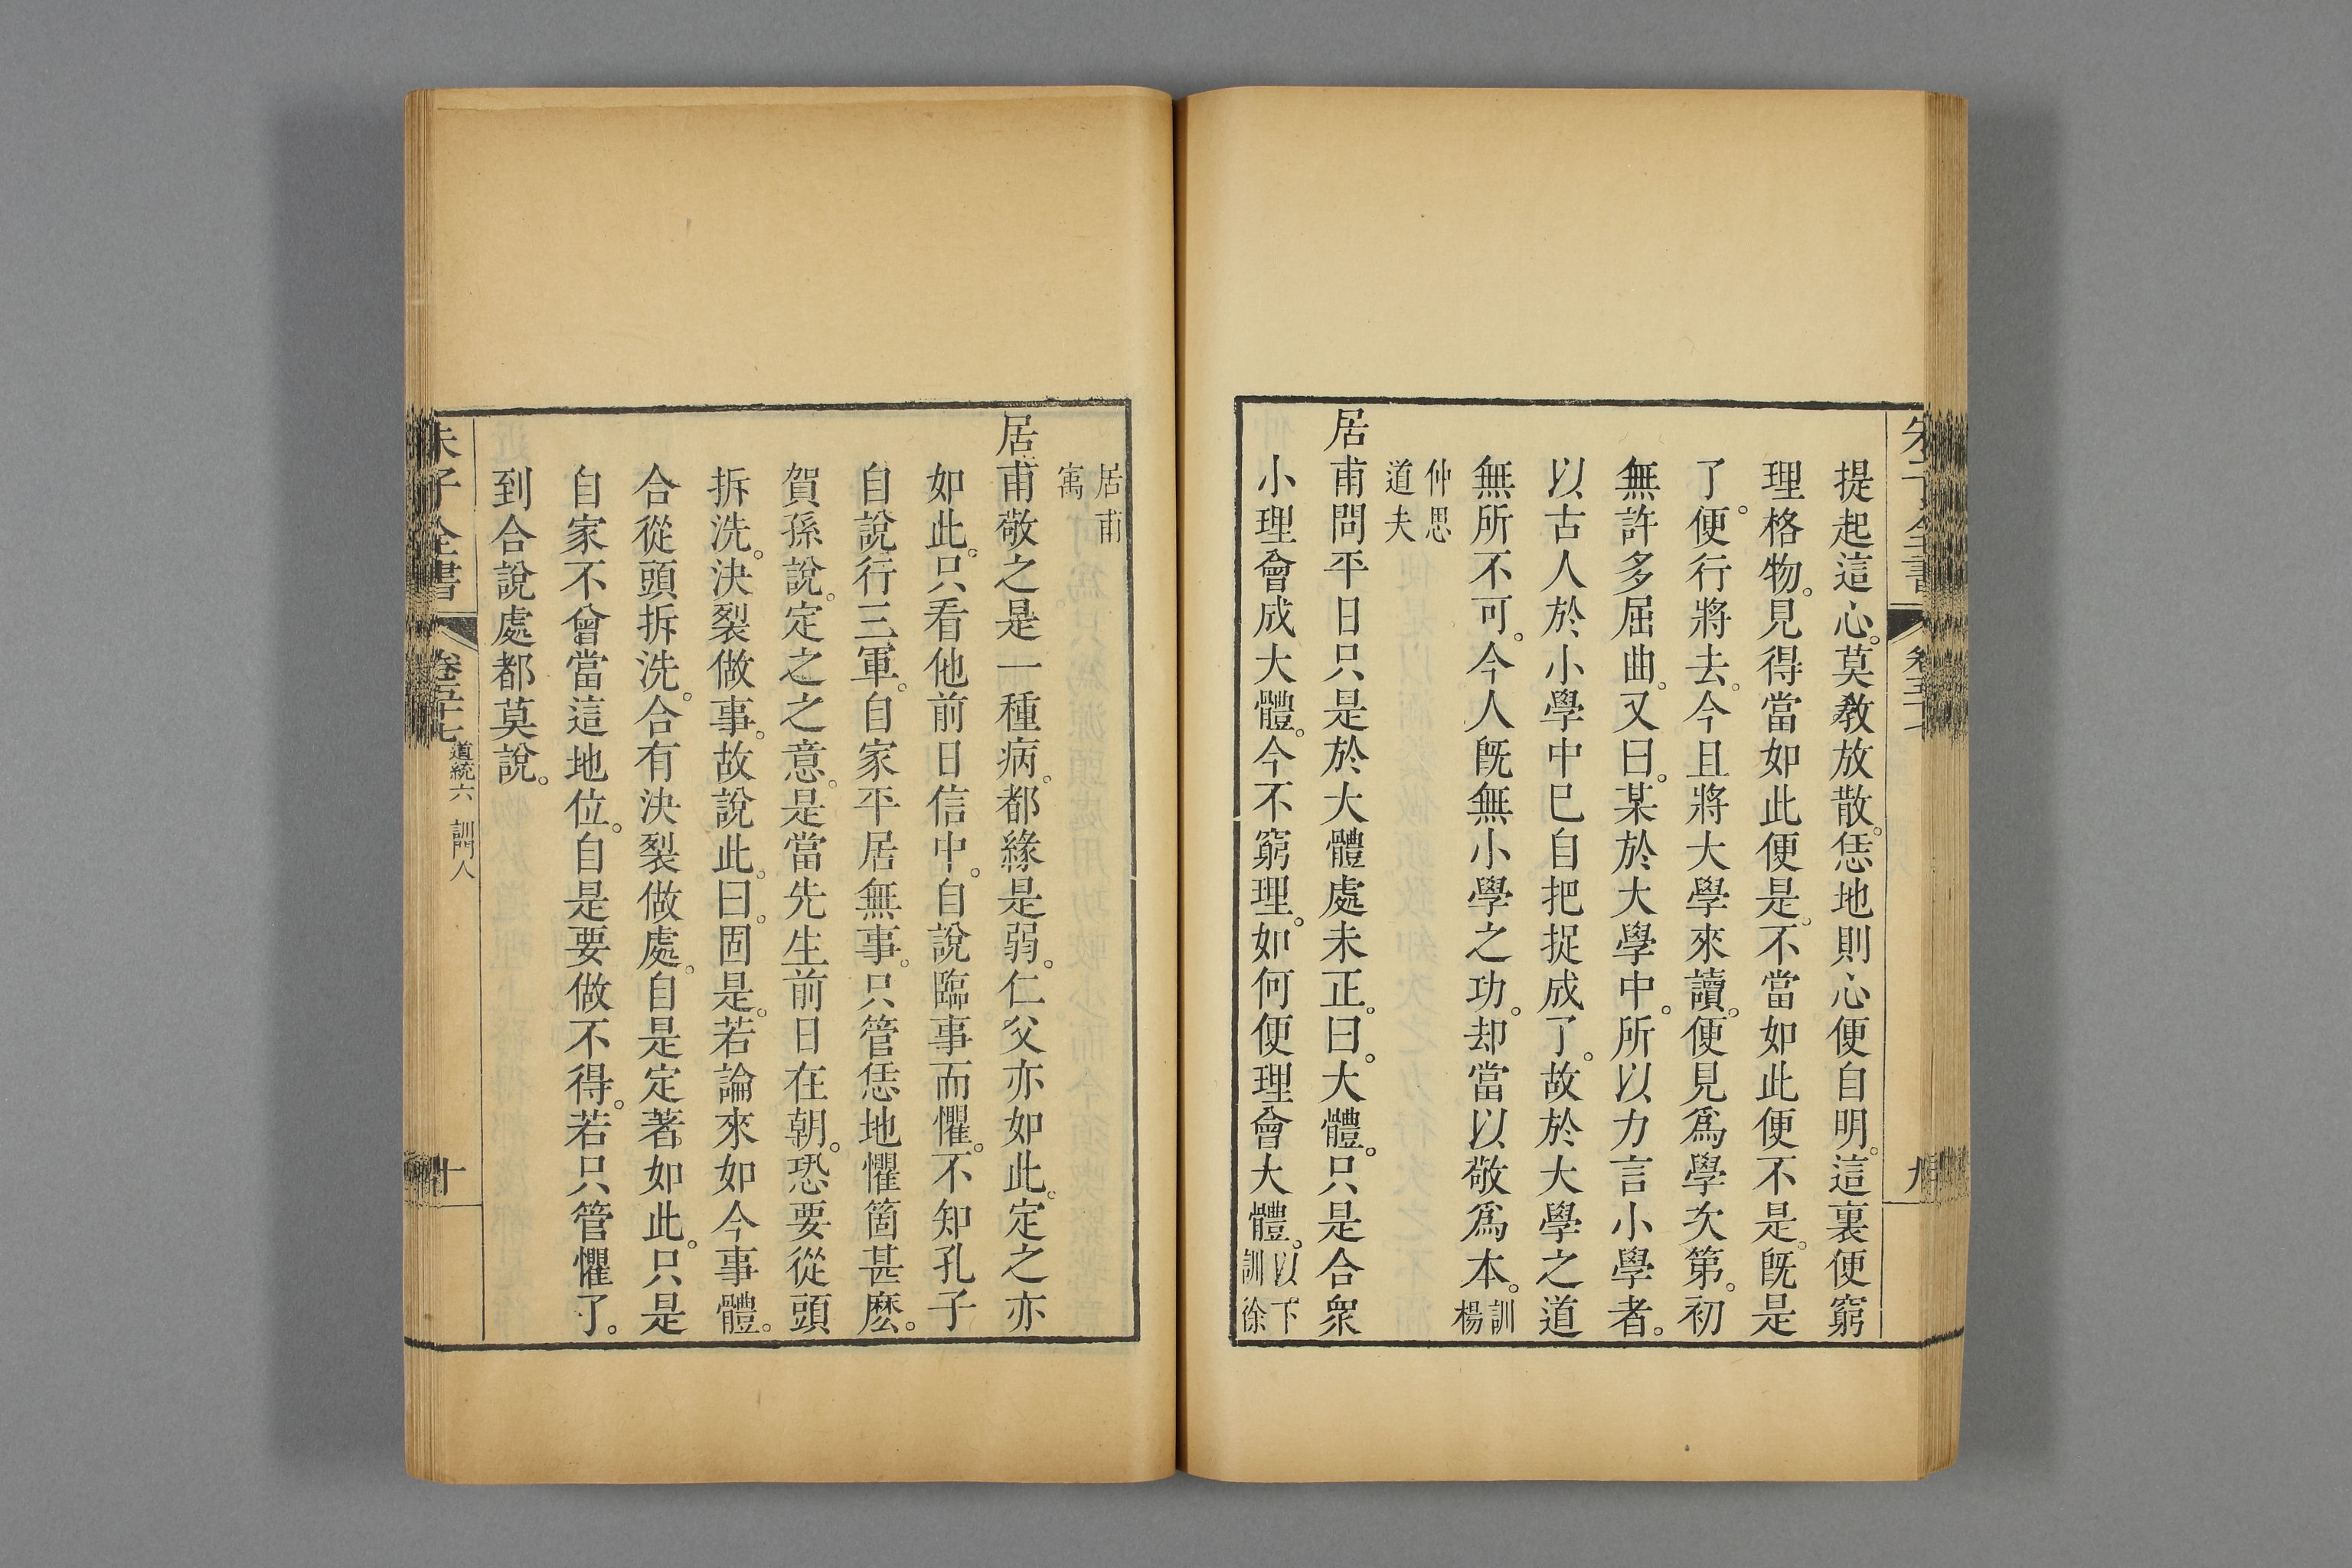 提起這心。莫敎放散。恁地則心便自明。這裏便窮
理格物。見得當如此便是。不當如此便不是。旣是
了。便行將去。今且將大學來讀。便見爲學次第。初
無許多屈曲。又曰。某於大學中。所以力言小學者。
以古人於小學中巳自把捉成了。故於大學之道
無所不可。今人旣無小學之功。却當以敬爲本。訓
楊
仲思
道夫
居甫問平日只是於大體處未正。曰。大體。只是合衆
小理會成大體。今不窮理。如何便理會大體。以下
訓徐
居甫
寓
居甫敬之是一種病。都緣是弱。仁父亦如此。定之亦
如此。只看他前日信中。自說臨事而懼。不知孔子
自說行三軍。自家平居無事。只管恁地懼箇甚麽。
賀孫說。定之之意。是當先生前日在朝。恐要從頭
拆洗。決裂做事。故說此。曰。固是。若論來如今事體。
合從頭拆洗。合有決裂做處。自是定著如此。只是
自家不曾當這地位。自是要做不得。若只管懼了。
到合說處都莫說。
朱子全書
卷五十七
道統六 訓門人
十